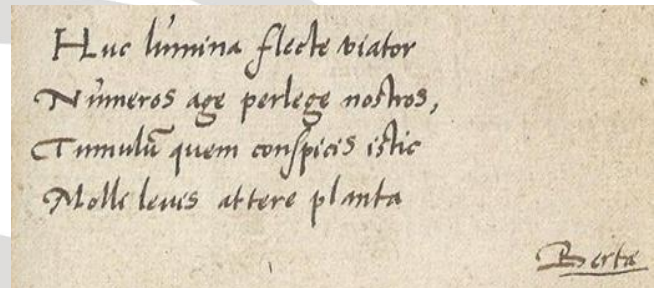 Huc lumina flecte viator
Numeros age perlege nostros,
Tumulū quem conspicis istic
Molli levis attere planta
Berta